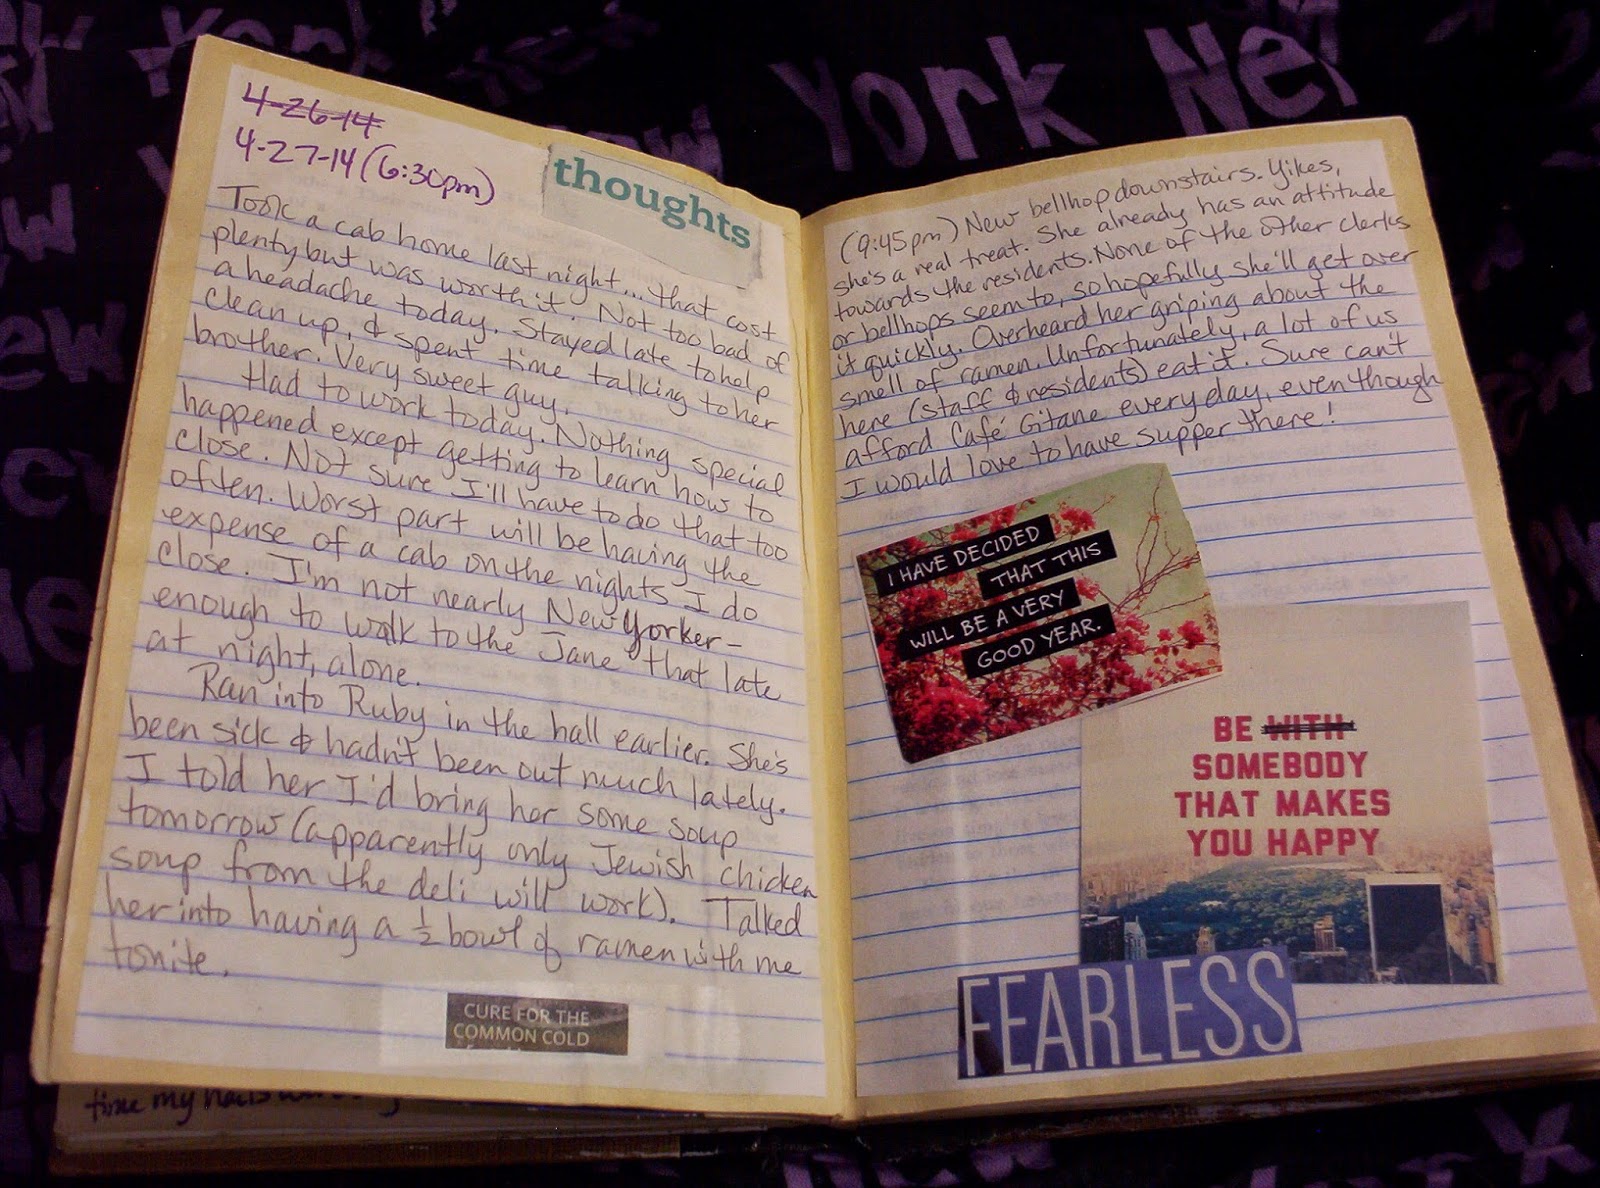 4-26-14
4-27-14 (6:30pm)
thoughts
Took a cab home last night... that cost
plenty but was worth it. Not too bad of
a headache today. Stayed late to help
clean up, & spent time talking to her
brother. Very sweet guy.
Had to work today. Nothing special
happened except getting to learn how to
close. Not sure I'll have to do that too
often. Worst part will be having the
expense of a cab on the nights I do
close. I'm not nearly New Yorker-
enough to walk to the Jane that late
at night, alone.
Ran into Ruby in the hall earlier. She's
been sick & hadn't been out much lately.
I told her I'd bring her some soup
tomorrow (apparently only Jewish chicken
soup from the deli will work). Talked
her into having a ½ bowl of ramen with me
tonite.
CURE FOR THE
COMMON COLD
time my
(9:45pm) New bellhop downstairs. Yikes,
she's a real treat. She already has an attitude
towards the residents. None of the other clerks
or bellhops seem to, so hopefully she'll get over
it quickly. Overheard her griping about the
smell of ramen. Unfortunately, a lot of us
here (staff & residents) eat it. Sure can't
afford Café Gitane everyday, even though
I would love to have supper there!
I HAVE DECIDED
THAT THIS
WILL BE A VERY
GOOD YEAR.
BE WITH
SOMEBODY
THAT MAKES
YOU HAPPY
FEARLESS
York New